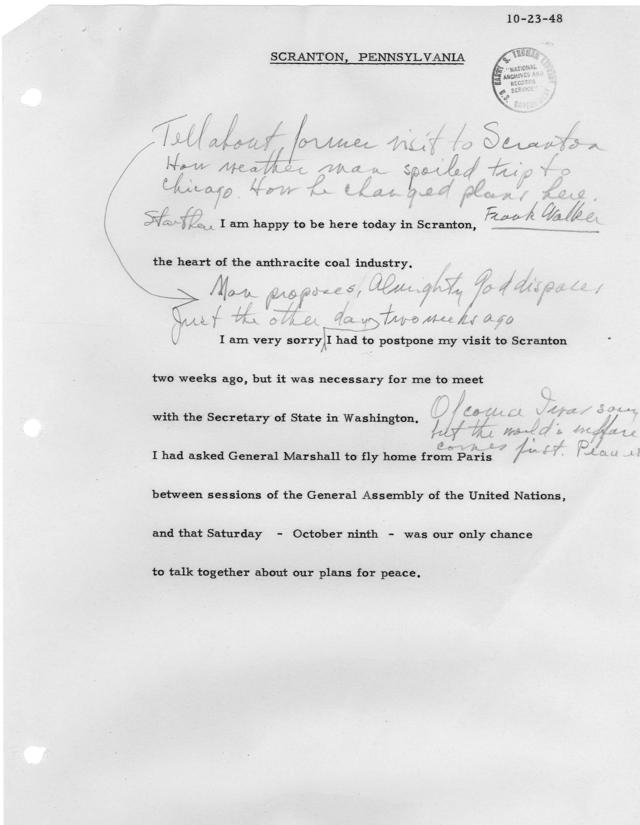 10-23-48
SCRANTON, PENNSYLVANIA
HARRY S. TRUMAN LIBRARY
"NATIONAL
ARCHIVES AND
RECORDS
SERVICE"
U.S. GOVERNMENT
Tell about former visit to Scranton
How weather man spoiled trip to
Chicago. How he changed plans here.
Frank Walker
I am happy to be here today in Scranton,
the heart of the anthracite coal industry.
Man proposes, Almighty God disposes
Just the other day two weeks ago
I am very sorry I had to postpone my visit to Scranton
two weeks ago, but it was necessary for me to meet
with the Secretary of State in Washington.
Of course I was sorry
but the world's welfare
comes first. Peace is
I had asked General Marshall to fly home from Paris
between sessions of the General Assembly of the United Nations,
and that Saturday - October ninth - was our only chance
to talk together about our plans for peace.